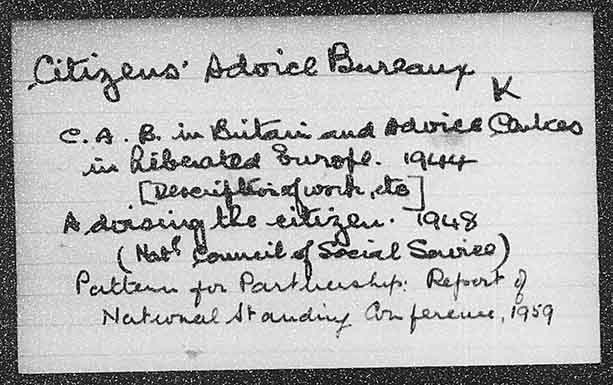 Citizens' Advice Bureaux
K
C.A.B. in Britain and Advice Centres
in Liberated Europe. 1944
[Description of work, etc]
Advising the citizen. 1948
(Natl Council of Social Service)
Pattern for Partnership: Report of
National Standing Conference, 1959